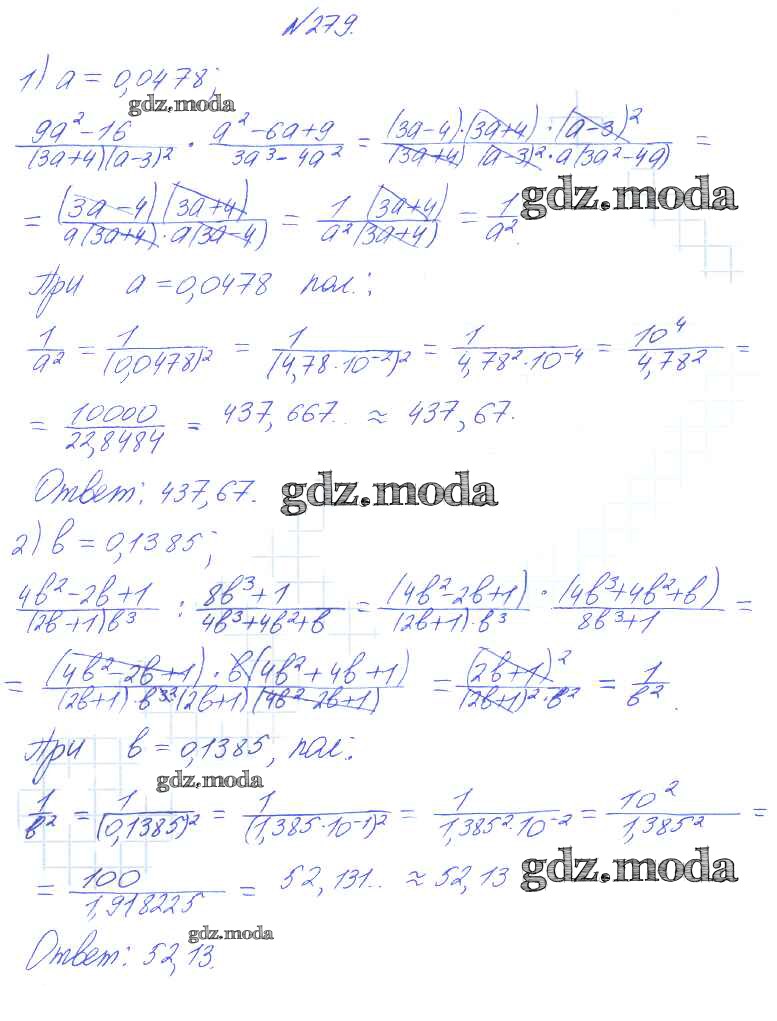 №279.
1) a = 0,0478;
gdz.moda
(9a² - 16)/((3a+4)(a-3)²) · (a² - 6a + 9)/(3a³ - 4a²) = ((3a-4)·(3a+4)·(a-3)²)/((3a+4)(a-3)²·a(3a²-4a)) =
gdz.moda
= ((3a-4)(3a+4))/(a(3a+4)·a(3a-4)) = (1(3a+4))/(a²(3a+4)) = 1/a².
При a = 0,0478 пол.:
1/a² = 1/(0,0478)² = 1/(4,78·10⁻²)² = 1/(4,78²·10⁻⁴) = 10⁴/4,78² =
= 10000/22,8484 = 437,667.. ≈ 437,67.
Ответ: 437,67.
gdz.moda
2) в = 0,1385;
(4в² - 2в + 1)/((2в+1)в³) : (8в³ + 1)/(4в³ + 4в² + в) = (4в² - 2в + 1)/((2в+1)·в³) · (4в³ + 4в² + в)/(8в³ + 1) =
= ((4в² - 2в + 1)·в(4в² + 4в + 1))/((2в+1)·в³²(2в+1)(4в² - 2в + 1)) = (2в+1)²/((2в+1)²·в²) = 1/в².
При в = 0,1385, пол.:
gdz.moda
1/в² = 1/(0,1385)² = 1/(1,385·10⁻¹)² = 1/(1,385²·10⁻²) = 10²/1,385² =
= 100/1,918225 = 52,131.. ≈ 52,13
gdz.moda
gdz.moda
Ответ: 52,13.